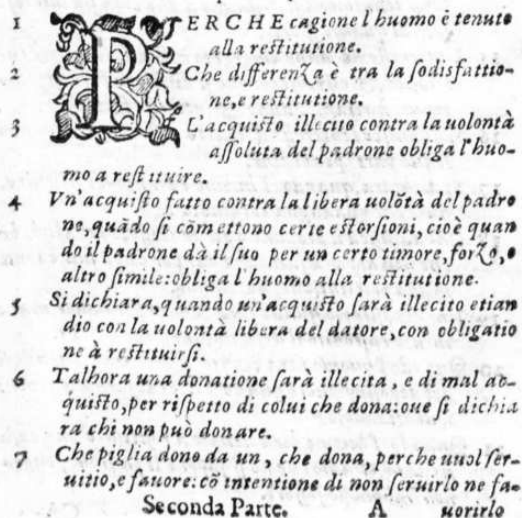 1 PERCHE cagione l'huomo è tenuto
alla restitutione.
2 Che differenza è tra la sodisfattio-
ne, e restitutione.
3 L'acquisto illecito contra la uolontà
assoluta del padrone obliga l'huo-
mo a restituire.
4 Vn'acquisto fatto contra la libera uolõtà del padro
ne, quãdo si cõmettono certe estorsioni, cioè quan
do il padrone dà il suo per un certo timore, forzo, o
altro simile: obliga l'huomo alla restitutione.
5 Si dichiara, quando un'acquisto sarà illecito etian
dio con la uolontà libera del datore, con obligatio
ne à restituirsi.
6 Talhora una donatione sarà illecita, e di mal ac-
quisto, per rispetto di colui che dona: oue si dichia
ra chi non può donare.
7 Che piglia dono da un, che dona, perche uuol ser-
uitio, e fauore: cõ intentione di non seruirlo ne fa-
Seconda Parte. A uorirlo